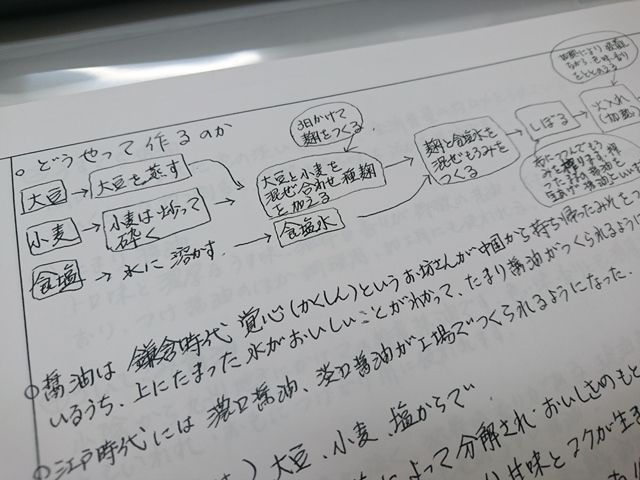 ○ どうやって作るのか
大豆 → 大豆を蒸す
小麦 → 小麦は炒って
砕く
食塩 → 水に溶かす →
食塩水
3日かけて
麹をつくる
大豆と小麦を
混ぜ合わせ種麹
を加える
麹と食塩水を
混ぜもろみを
つくる
しぼる
火入れ
○ 醤油は 鎌倉時代 覚心(かくしん)というお坊さんが中国から持ち帰ったみそをつ
いるうち、上にたまった水がおいしいことがわかって、たまり醤油がつくられるように
○ 江戸時代には 濃口醤油、淡口醤油が工場でつくられるようになった。
) 大豆、小麦、塩からで
によって分解され おいしさのもと
甘味とコクが生ま